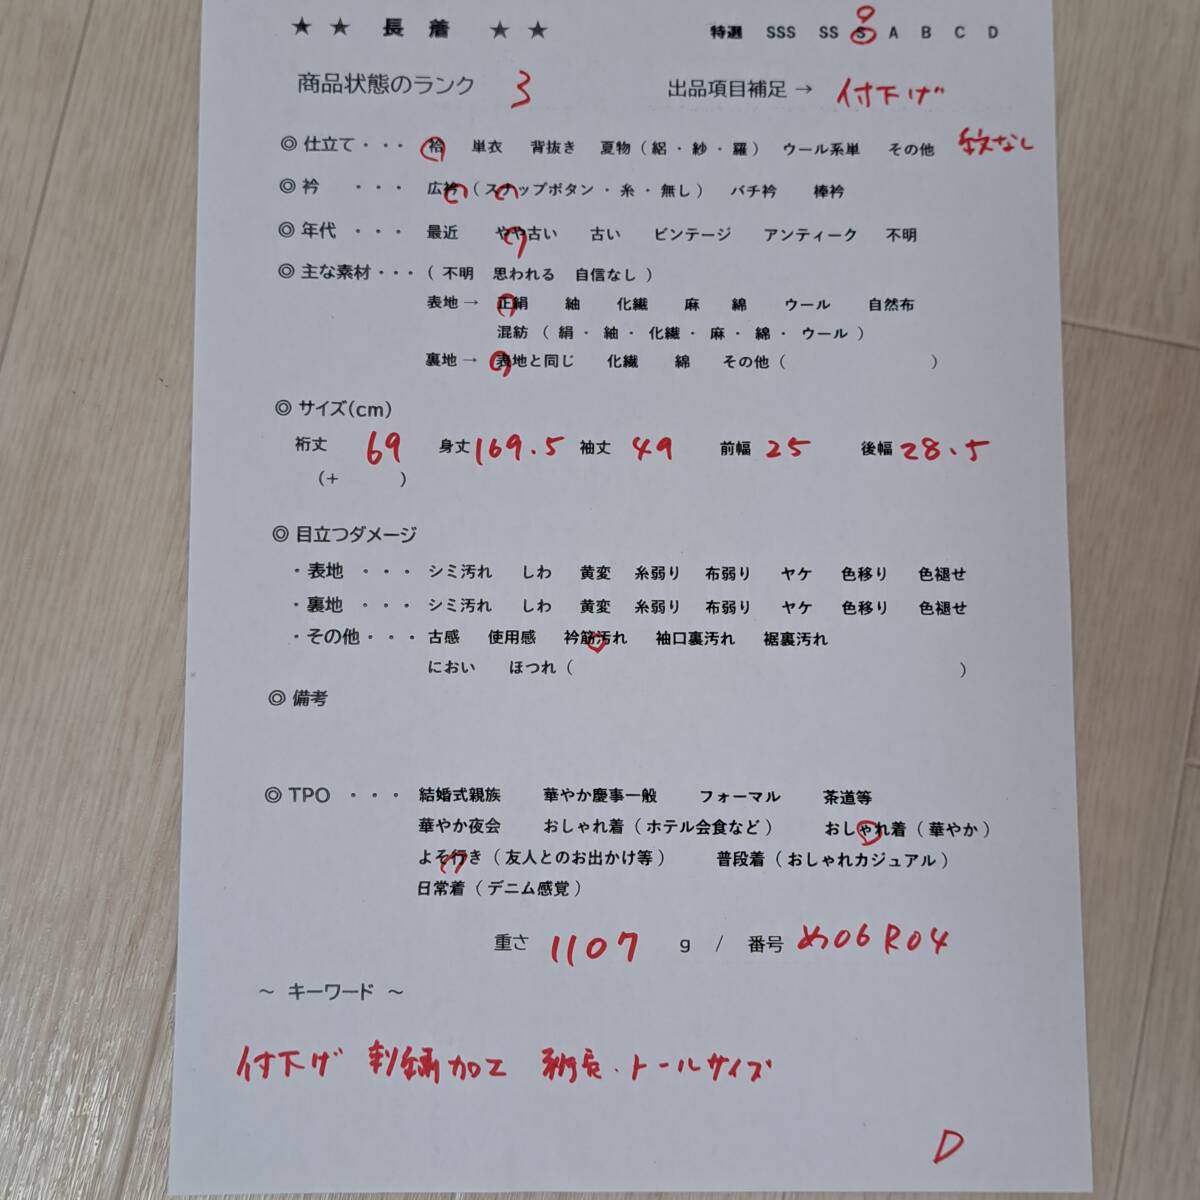 ★ ★ 長 着 ★ ★ 特選 SSS SS S A B C D
商品状態のランク 3 出品項目補足 → 付下げ
◎ 仕立て ・・・ 袷 単衣 背抜き 夏物 ( 絽 ・ 紗 ・ 羅 ) ウール系単 その他 紋なし
◎ 衿 ・・・ 広衿 ( スナップボタン ・ 糸 ・ 無し ) バチ衿 棒衿
◎ 年代 ・・・ 最近 やや古い 古い ビンテージ アンティーク 不明
◎ 主な素材 ・・・ ( 不明 思われる 自信なし )
表地 → 正絹 紬 化繊 麻 綿 ウール 自然布
混紡 ( 絹 ・ 紬 ・ 化繊 ・ 麻 ・ 綿 ・ ウール )
裏地 → 表地と同じ 化繊 綿 その他 ( )
◎ サイズ(cm)
裄丈 69 身丈 169.5 袖丈 49 前幅 25 後幅 28.5
(+ )
◎ 目立つダメージ
・表地 ・・・ シミ汚れ しわ 黄変 糸弱り 布弱り ヤケ 色移り 色褪せ
・裏地 ・・・ シミ汚れ しわ 黄変 糸弱り 布弱り ヤケ 色移り 色褪せ
・その他 ・・・ 古感 使用感 衿筋汚れ 袖口裏汚れ 裾裏汚れ
におい ほつれ ( )
◎ 備考
◎ TPO ・・・ 結婚式親族 華やか慶事一般 フォーマル 茶道等
華やか夜会 おしゃれ着 ( ホテル会食など ) おしゃれ着 ( 華やか )
よそ行き ( 友人とのお出かけ等 ) 普段着 ( おしゃれカジュアル )
日常着 ( デニム感覚 )
重さ 1107 g / 番号 め06R04
～ キーワード ～
付下げ 刺繍加工 裄長・トールサイズ
D